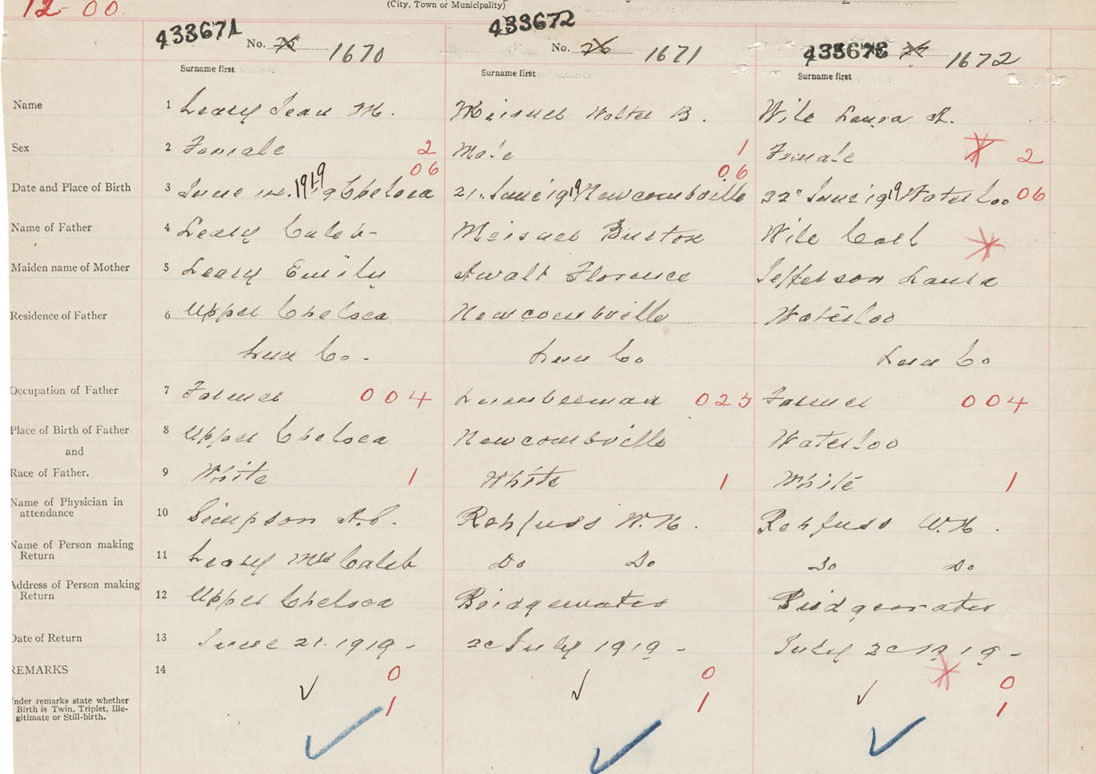 12-00.
(City, Town or Municipality)
433671 433672 433673
No. 25 1670 No. 26 1671 1672
Surname first Surname first Surname first
Name 1 Leary Jean M. Meisner Walter B. Wile Laura A.
Sex 2 Female 2 Male 1 Female 2
06 06
Date and Place of Birth 3 June 12. 1919 Chelsea 21. June 1919 Newcombville June 1919 Waterloo 06
Name of Father 4 Leary Caleb- Meisner Burton Wile Carl
Maiden name of Mother 5 Leary Emily Awalt Florence Jefferson Laura
Residence of Father 6 Upper Chelsea Newcombville Waterloo
Lun Co. Lun Co Lun Co
Occupation of Father 7 Farmer 004 Lumberman 023 Farmer 004
Place of Birth of Father 8 Upper Chelsea Newcombville Waterloo
and
Race of Father. 9 White 1 White 1 White 1
Name of Physician in
attendance 10 Simpson A.S. Rehfuss W.N. Rehfuss W.N.
Name of Person making
Return 11 Leary Mrs Caleb Do Do Do Do
Address of Person making
Return 12 Upper Chelsea Bridgewater Bridgewater
Date of Return 13 June 21. 1919- July 1919- July 19-
REMARKS 14 0 0 0
Under remarks state whether
Birth is Twin, Triplet, Ille-
gitimate or Still-birth. 1 1 1